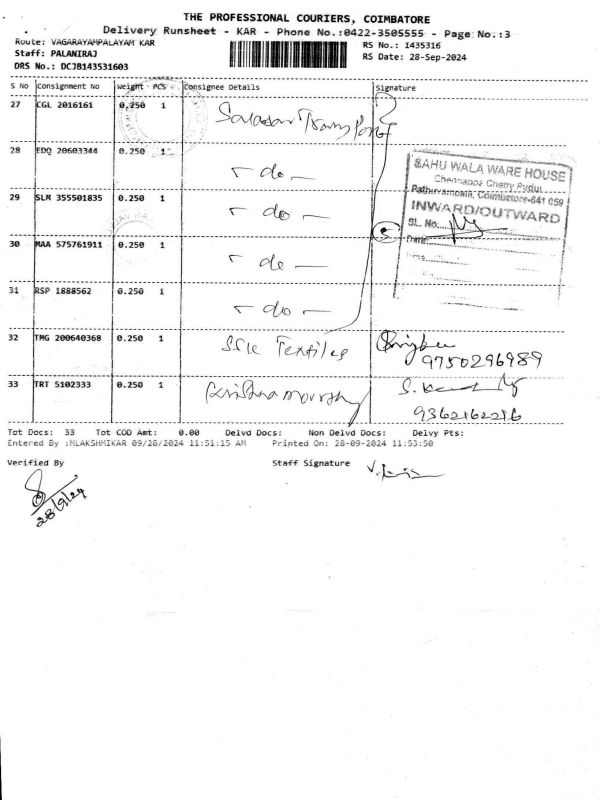 THE PROFESSIONAL COURIERS, COIMBATORE
Delivery Runsheet - KAR - Phone No.:0422-3505555 - Page No.:3
Route: VAGARAYAMPALAYAM KAR
RS No.: 1435316
Staff: PALANIRAJ
RS Date: 28-Sep-2024
DRS No.: DCJB143531603
S No Consignment No Weight PCS Consignee Details Signature
27 CGL 2016161 0.250 1 Salasar Transport
28 EDQ 20603344 0.250 1 - do -
29 SLM 355501835 0.250 1 - do -
30 MAA 575761911 0.250 1 - do -
31 RSP 1888562 0.250 1 - do -
SAHU WALA WARE HOUSE
Chennappa Chetty Pudur
Coimbatore-641 659
INWARD/OUTWARD
SL. No.
Date
32 TMG 200640368 0.250 1 SSK Textiles
9750296989
33 TRT 5102333 0.250 1 Krishnamoorthy
9362162216
Tot Docs: 33 Tot COD Amt: 0.00 Delvd Docs: Non Delvd Docs: Delvy Pts:
Entered By :MLAKSHMIKAR 09/28/2024 11:51:15 AM Printed On: 28-09-2024 11:53:50
Verified By Staff Signature
28/9/24